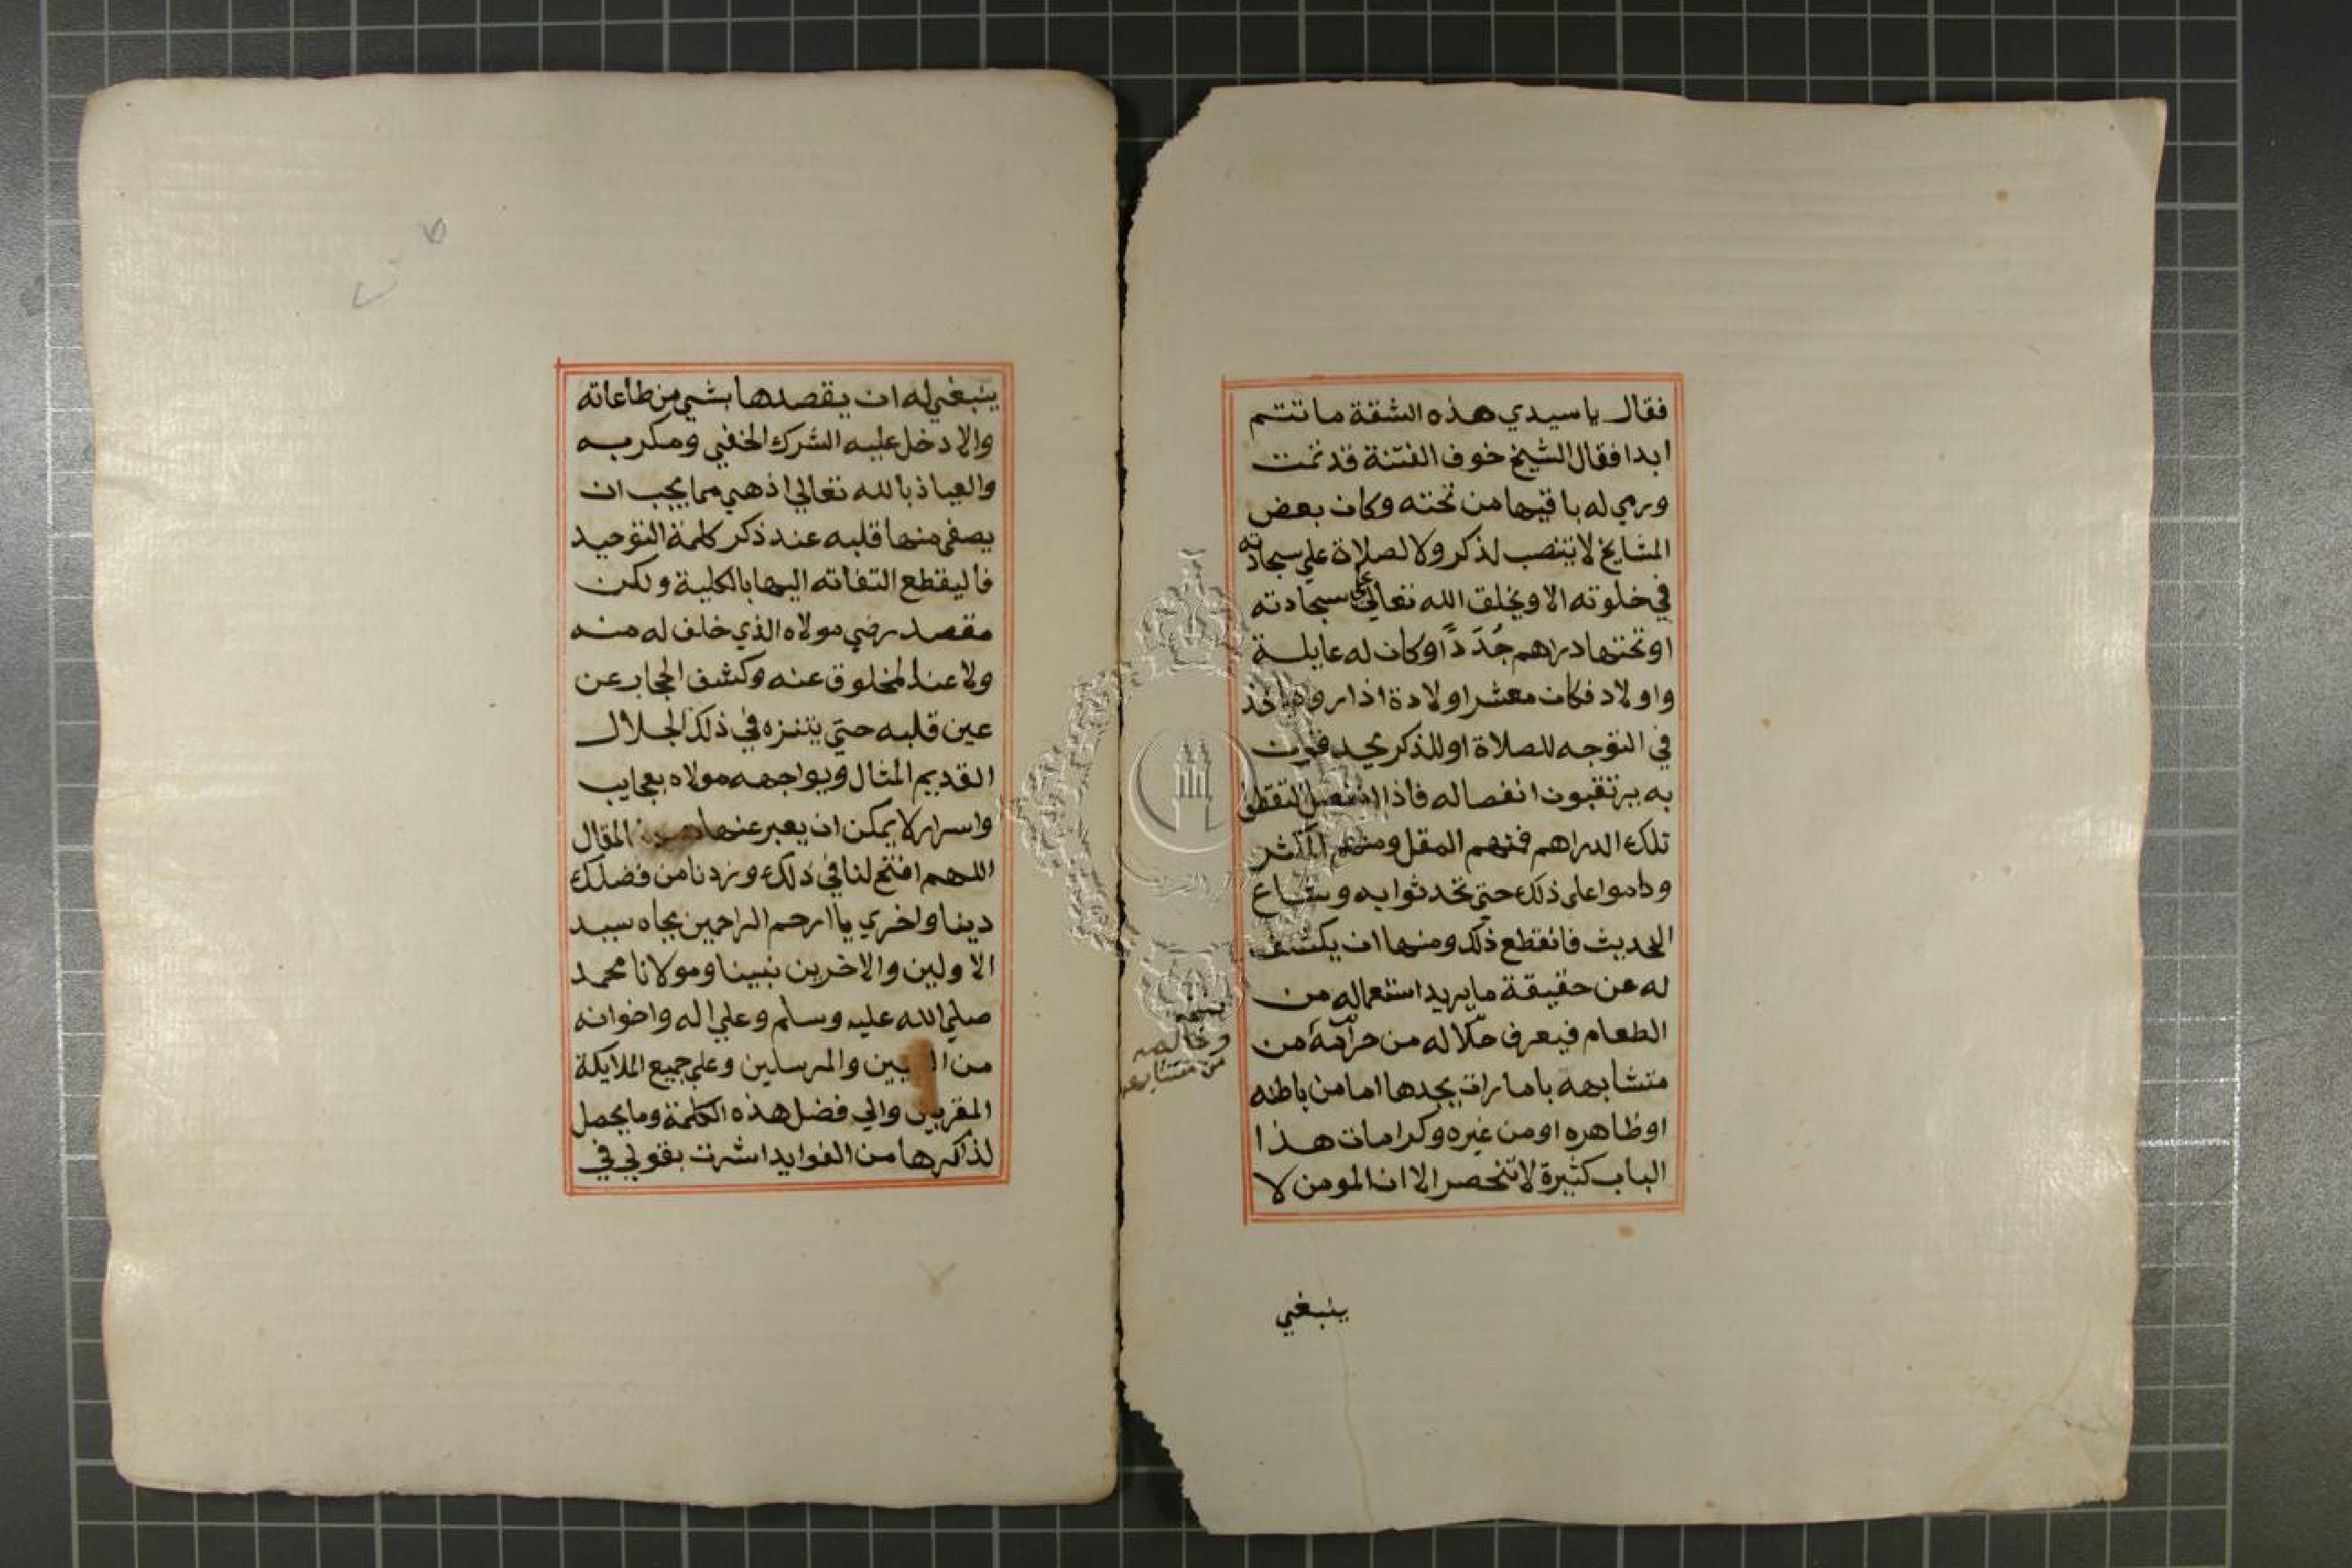 فقال يا سيدي هذه الشقة ما تتم
ابدا فقال الشيخ خوف الفتنة قد تمت
ورمي له باقيها من تحته وكان بعض
المشايخ لا ينتصب لذكر ولا لصلاة علي سجادته
في خلوته الا ويخلق الله تعالي علي سجادته
او تحتها دراهم جُدَدًا وكان له عايلة
واولاد فكان معشر اولاده اذا راوه ياخذ
في التوجه للصلاة او للذكر يحدقون
به يرتقبون انفصاله فاذا انفصل التقطوا
تلك الدراهم فمنهم المقل ومنهم المكثر
وداموا على ذلك حتى تحدثوا به وشاع
الحديث فانقطع ذلك ومنها ان يكشف
له عن حقيقة ما يريد استعماله من
الطعام فيعرف حلاله من حرامه من
متشابهه بامارات يجدها اما من باطنه
او ظاهره او من غيره وكرامات هذا
الباب كثيرة لا تنحصر الا ان المومن لا
ينبغي
ينبغي له ان يقصدها بشي من طاعاته
والا دخل عليه الشرك الخفي ومكر به
والعياذ بالله تعالي اذ هي مما يجب ان
يصفي منها قلبه عند ذكر كلمة التوحيد
فاليقطع التفاته اليها بالكلية وليكن
مقصد رضي مولاه الذي خلف له منه
ولا عند المخلوق عنه وكشف الحجاب عن
عين قلبه حتي يتنزه في ذلك الجلال
القديم المثال ويواجهه مولاه بعجايب
واسرار لا يمكن ان يعبر عنها المقال
اللهم افتح لنا في ذلك وزدنا من فضلك
دينا واخري يا ارحم الراحمين بجاه سيد
الاولين والاخرين نبينا ومولانا محمد
صلي الله عليه وسلم وعلي اله واخوانه
من النبيين والمرسلين وعلي جميع الملايكة
المقربين والي فضل هذه الكلمة وما يحصل
لذاكرها من الفوايد اشرت بقولي في